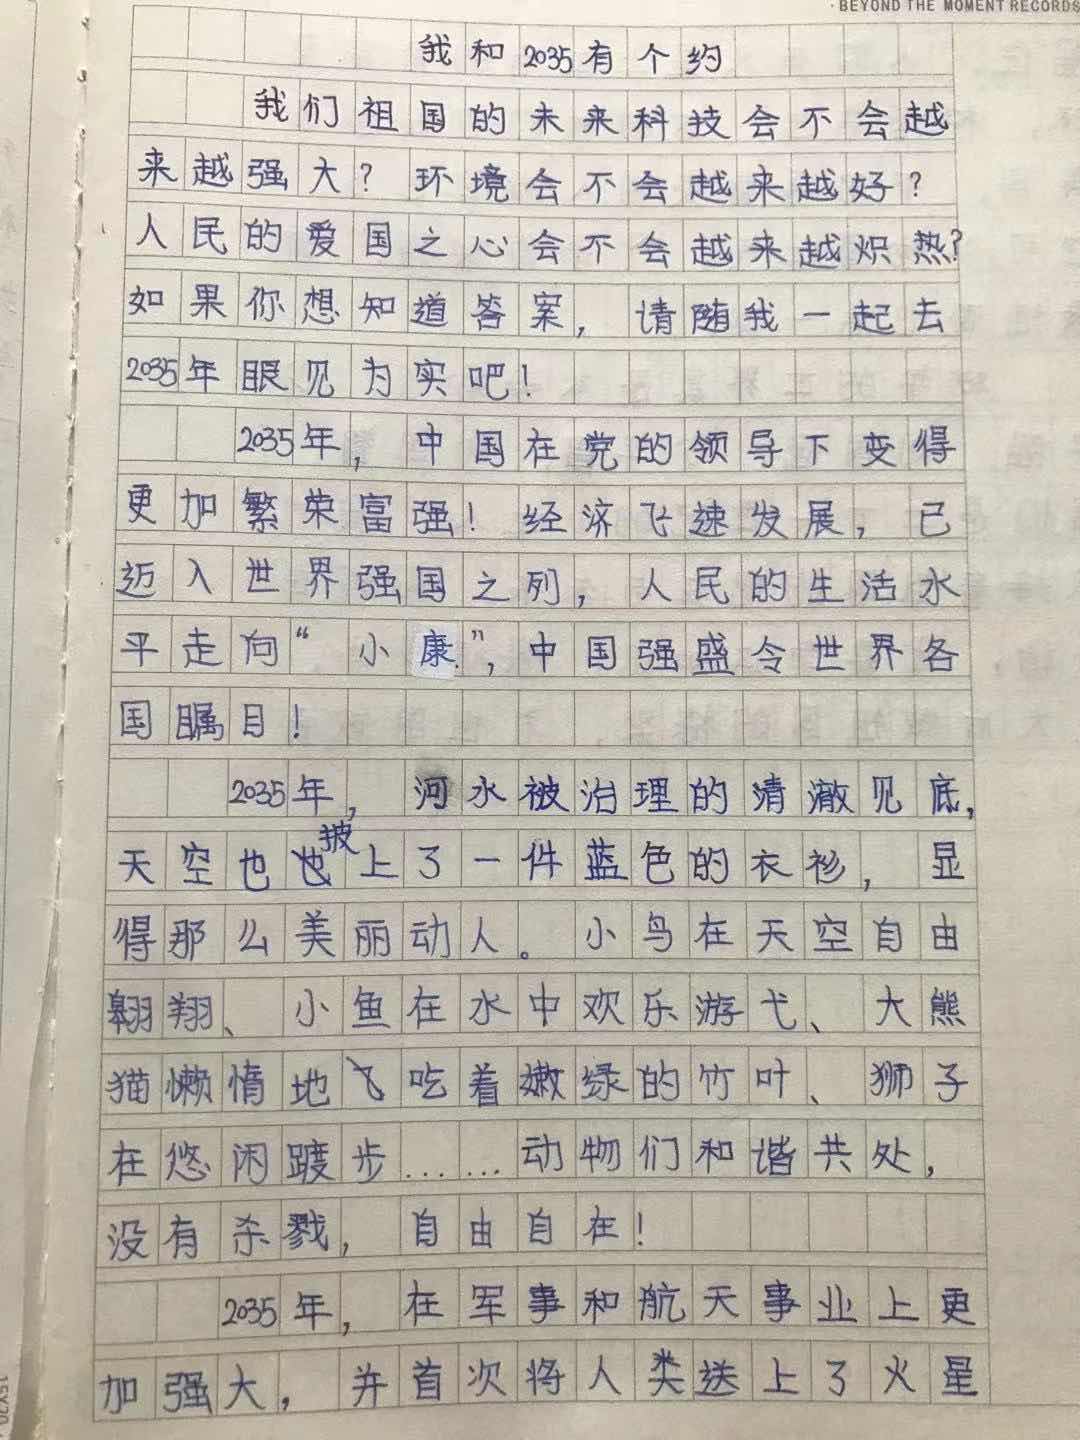 ·BEYOND THE MOMENT RECORDS
我和2035有个约
我们祖国的未来科技会不会越
来越强大？环境会不会越来越好？
人民的爱国之心会不会越来越炽热？
如果你想知道答案，请随我一起去
2035年眼见为实吧！
2035年，中国在党的领导下变得
更加繁荣富强！经济飞速发展，已
迈入世界强国之列，人民的生活水
平走向“小康”，中国强盛令世界各
国瞩目！
2035年，河水被治理的清澈见底，
天空也披上了一件蓝色的衣衫，显
得那么美丽动人。小鸟在天空自由
翱翔、小鱼在水中欢乐游弋、大熊
猫懒惰地吃着嫩绿的竹叶、狮子
在悠闲踱步……动物们和谐共处，
没有杀戮，自由自在！
2035年，在军事和航天事业上更
加强大，并首次将人类送上了火星